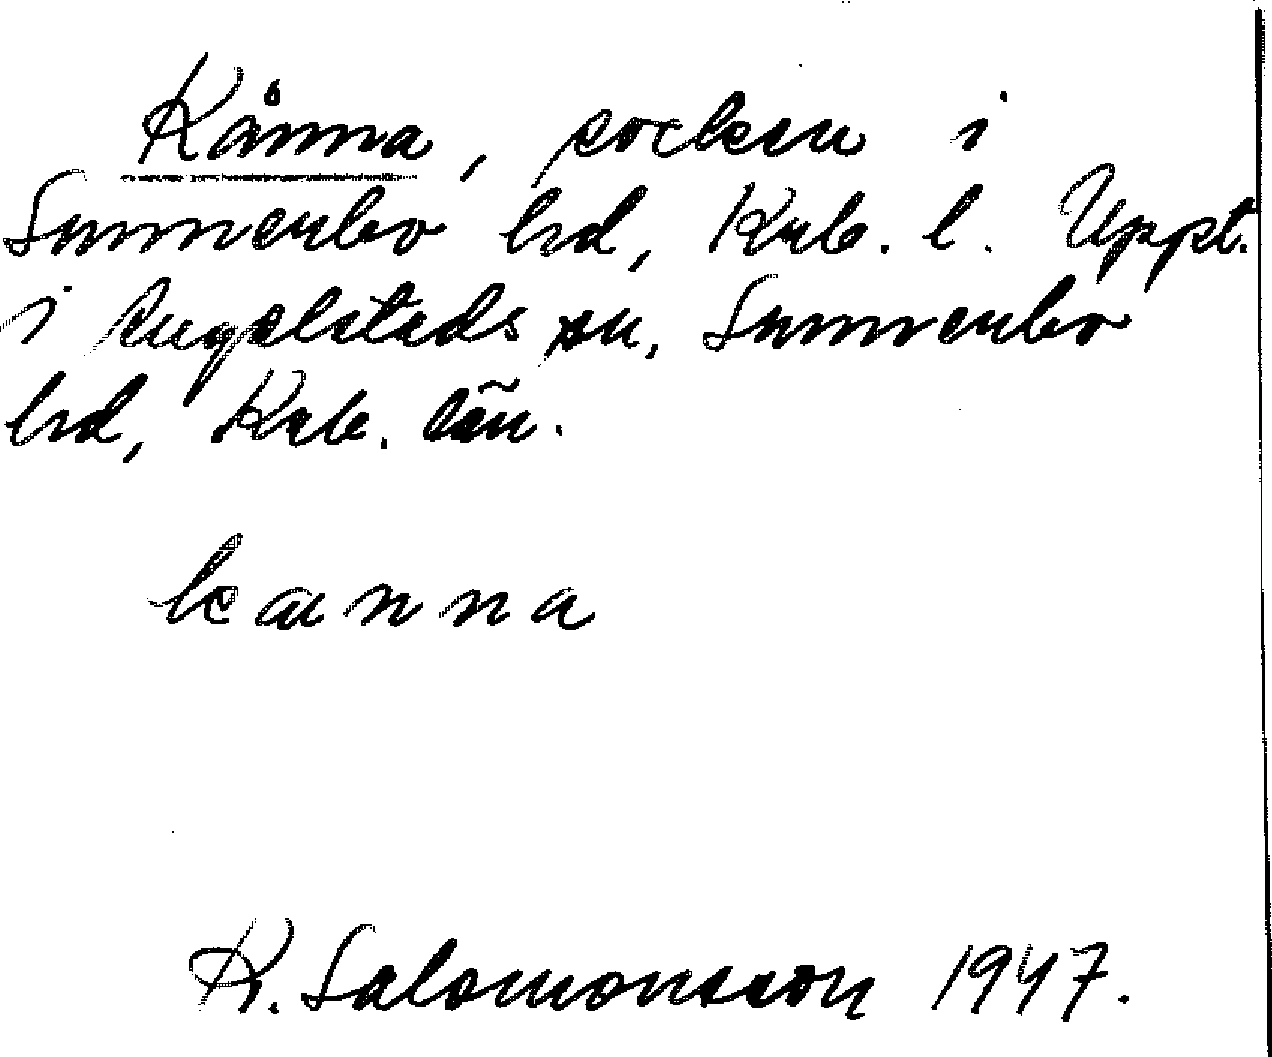 Kånna, socken i
Sunnerbo hd, Krb. l. Uppt.
i Angelstads sn, Sunnerbo
hd, Krb. län.
kanna
K. Salomonsson 1947.